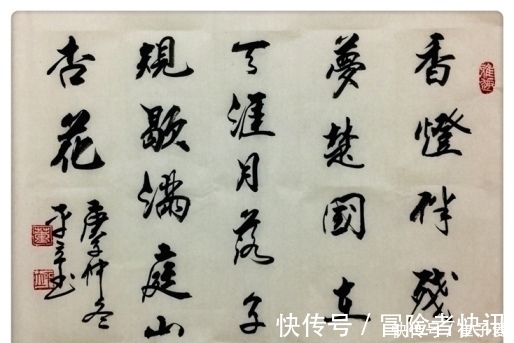 香燈伴殘
夢楚國在
天涯月落子
規歇滿庭山
杏花
庚子仲冬
快传号 / 冒险者快讯